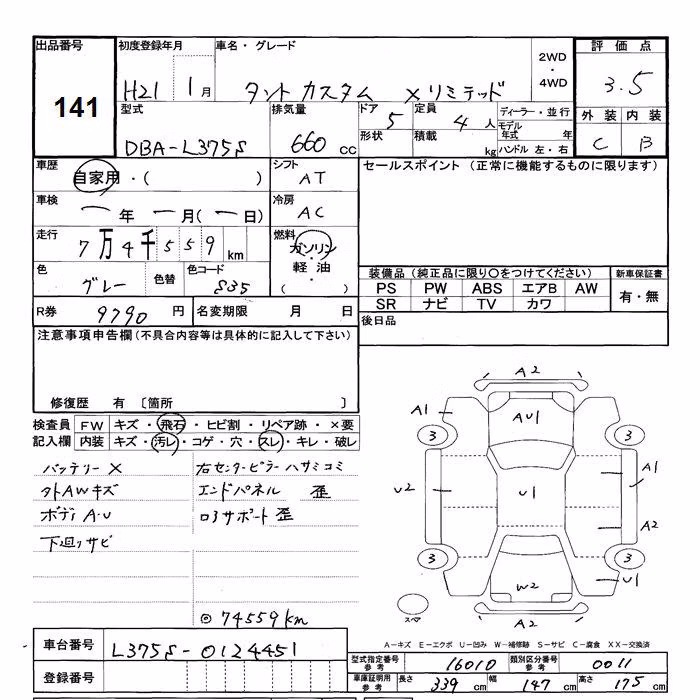 出品番号 初度登録年月 車名・グレード 2WD・4WD 評価点
141 H21 1月 タントカスタム Xリミテッド 3.5
型式 排気量 ドア 5 定員 4人 ディーラー・並行 外装 内装
DBA-L375S 660cc 形状 積載 kg モデル年式 年 ハンドル 左・右 C B
車歴 自家用・( ) シフト AT セールスポイント (正常に機能するものに限ります)
車検 ー年 ー月(ー日) 冷房 AC
走行 7万4千559km 燃料 ガソリン・軽油・( )
色 グレー 色替 色コード S35 装備品(純正品に限り○をつけてください) 新車保証書
PS PW ABS エアB AW 有・無
SR ナビ TV カワ
R券 9790円 名変期限 月 日 後日品
注意事項申告欄(不具合内容等は具体的に記入して下さい)
修復歴 有 〔箇所 〕
検査員 FW キズ・飛石・ヒビ割・リペア跡・×要
記入欄 内装 キズ・汚レ・コゲ・穴・スレ・キレ・破レ
バッテリー× 右センターピラーハサミコミ
外AWキズ エンドパネル 歪
ボディA・U ロアサポート歪
下廻リサビ
◎74559km
A2
A1 AU1
3 3
U2 U1 A1
A2
3 3
W2 U1
スペア A2
A-キズ E-エクボ U-凹み W-補修跡 S-サビ C-腐食 XX-交換済
車台番号 L375S-0124451
型式指定番号参考 16010 類別区分番号参考 0011
登録番号
車庫証明用参考 長さ 339cm 幅 147cm 高さ 175cm